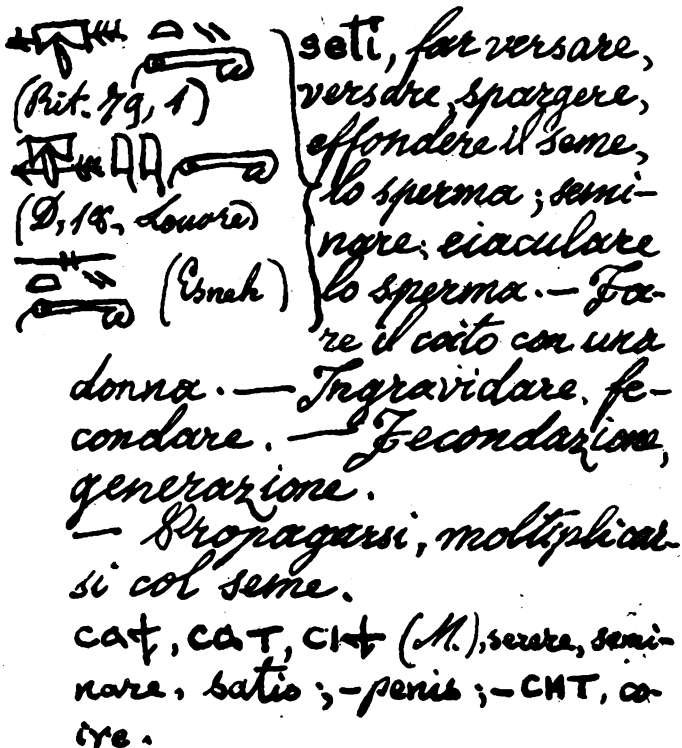 seti, far versare,
(Rit. 79, 1) versare, spargere,
effondere il seme,
lo sperma; semi-
(D, 18, Louvre) nare; eiaculare
(Esneh) lo sperma. — Fa-
re il coito con una
donna. — Ingravidare, fe-
condare. — Fecondazione,
generazione.
— Propagarsi, moltiplicar-
si col seme.
ⲥⲁϯ, ⲥⲁⲧ, ⲥⲓϯ (M.), serere, semi-
nare, satio; - penis; - ⲥⲏⲧ, co-
ire.